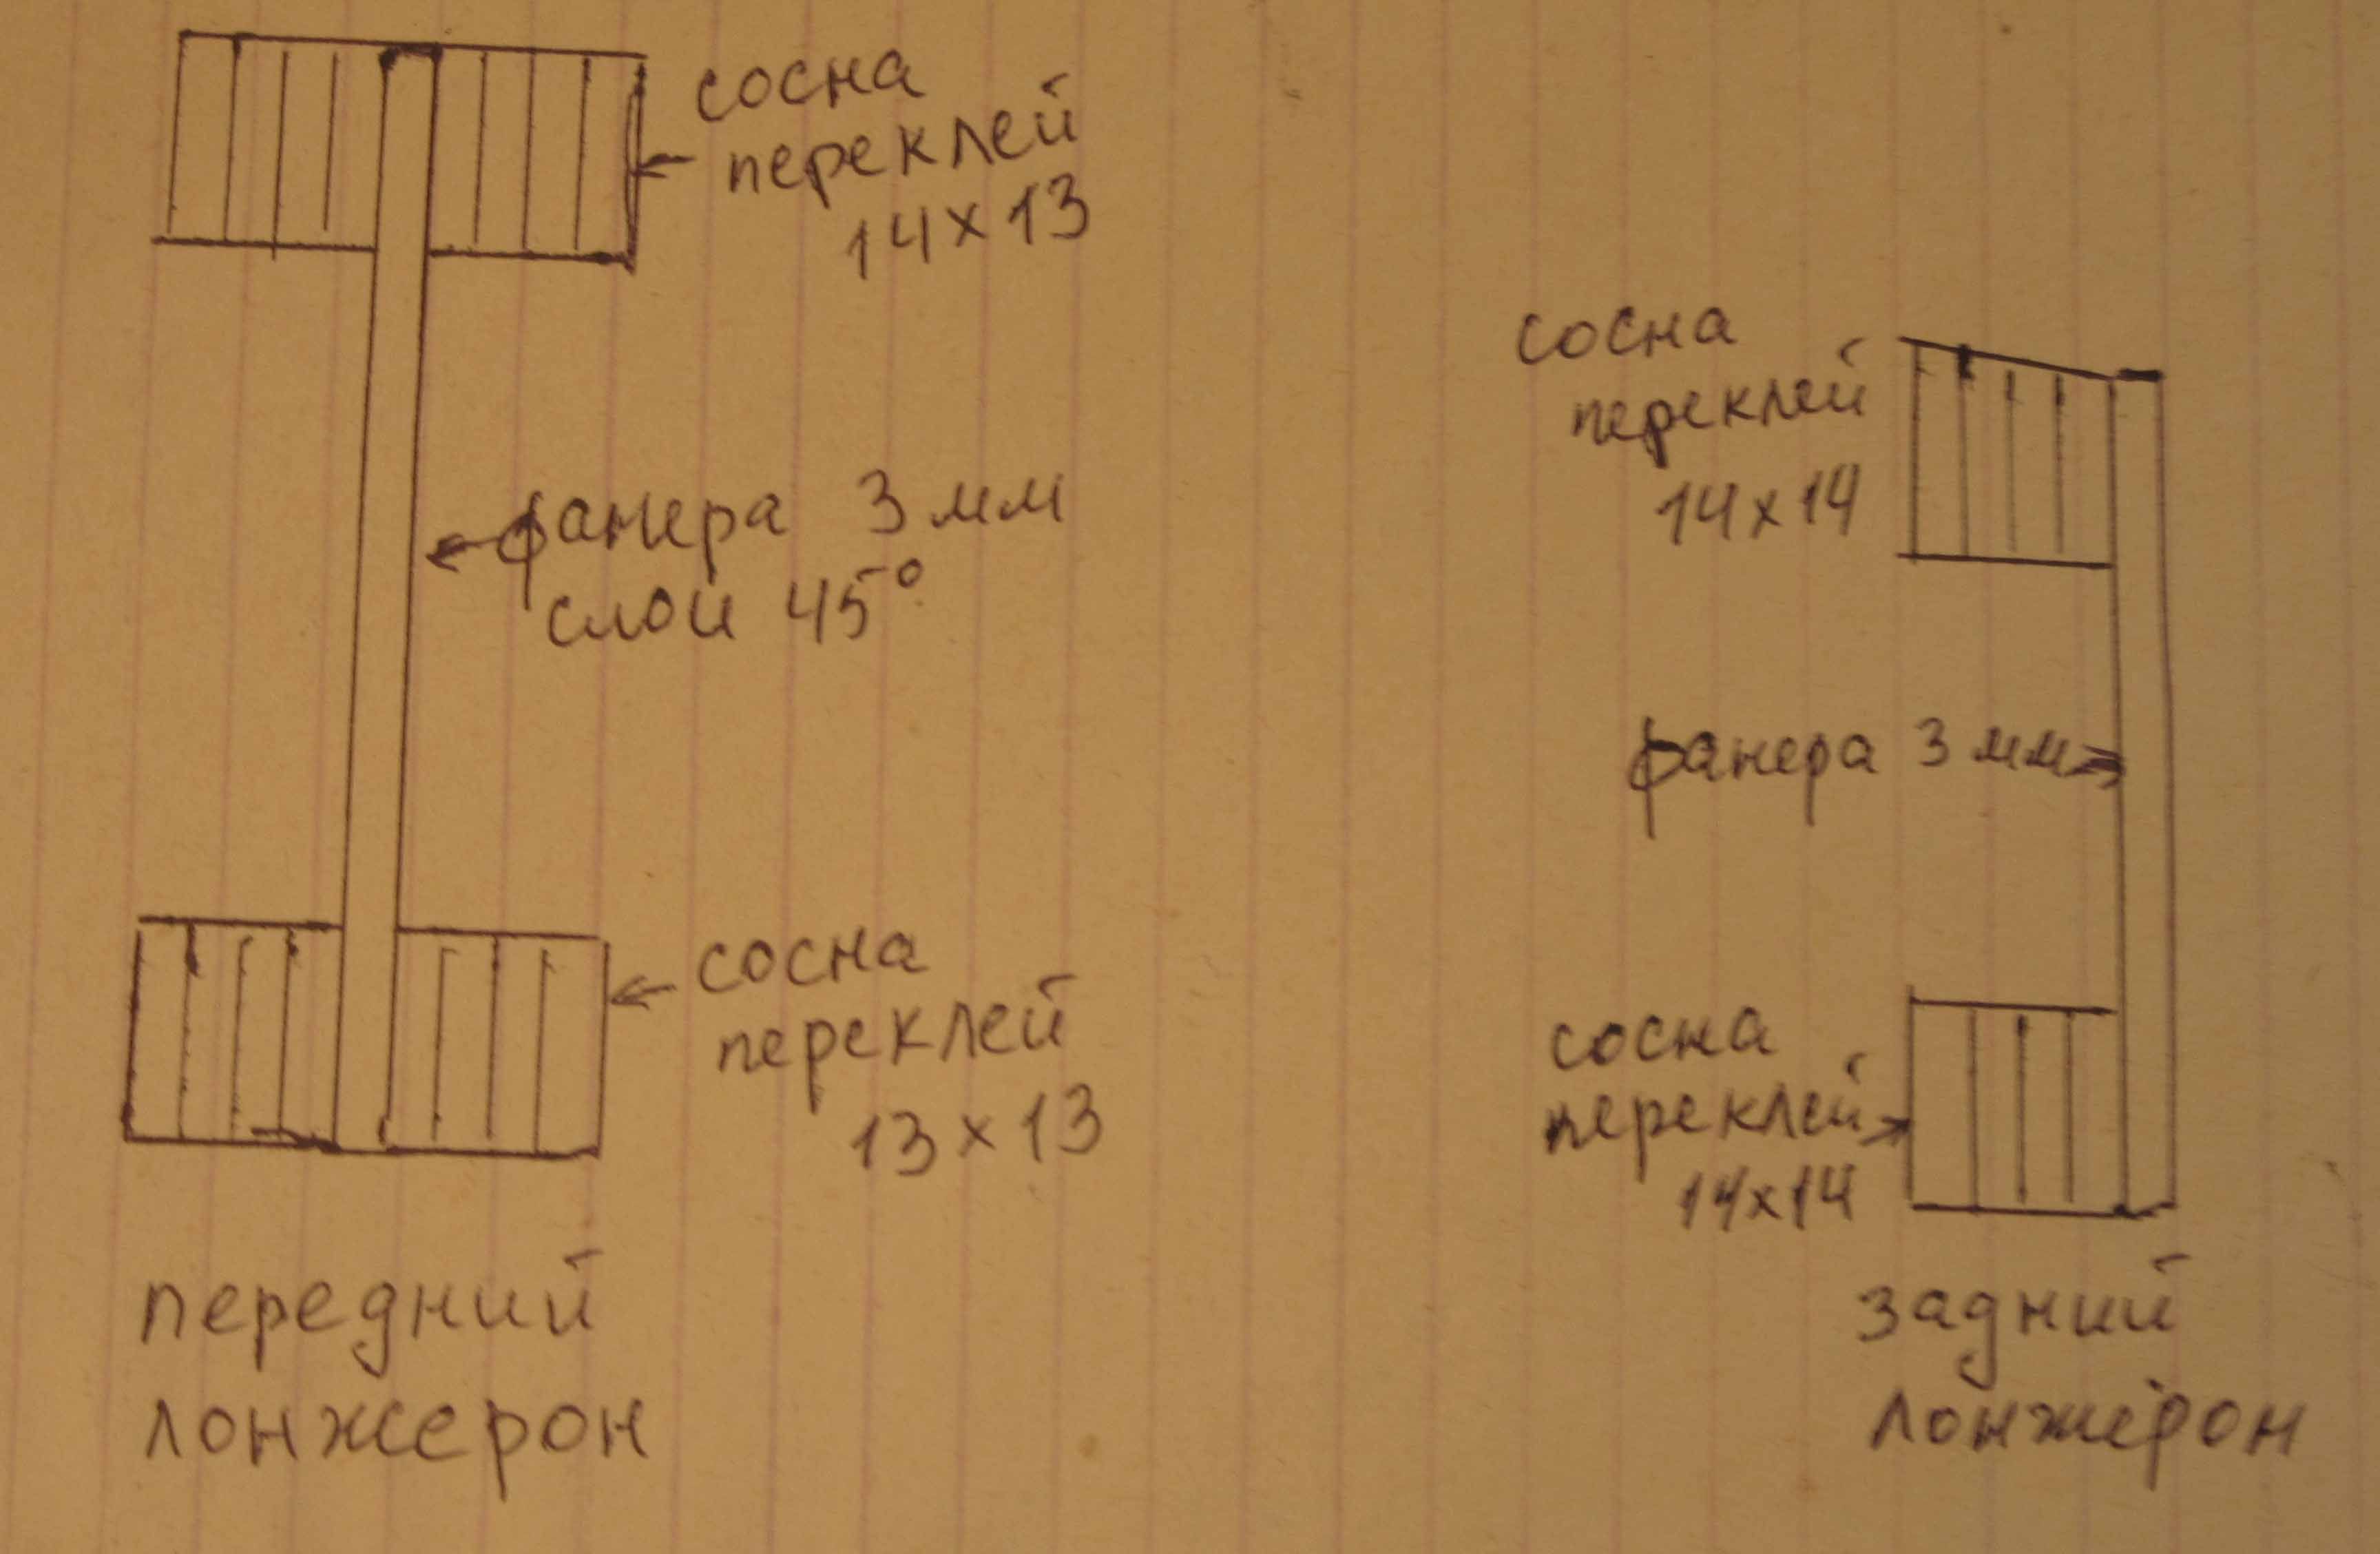 сосна
переклей
14х13
фанера 3 мм
слои 45°
сосна
переклей
13х13
передний
лонжерон
сосна
переклей
14х14
фанера 3 мм
сосна
переклей
14х14
задний
лонжерон